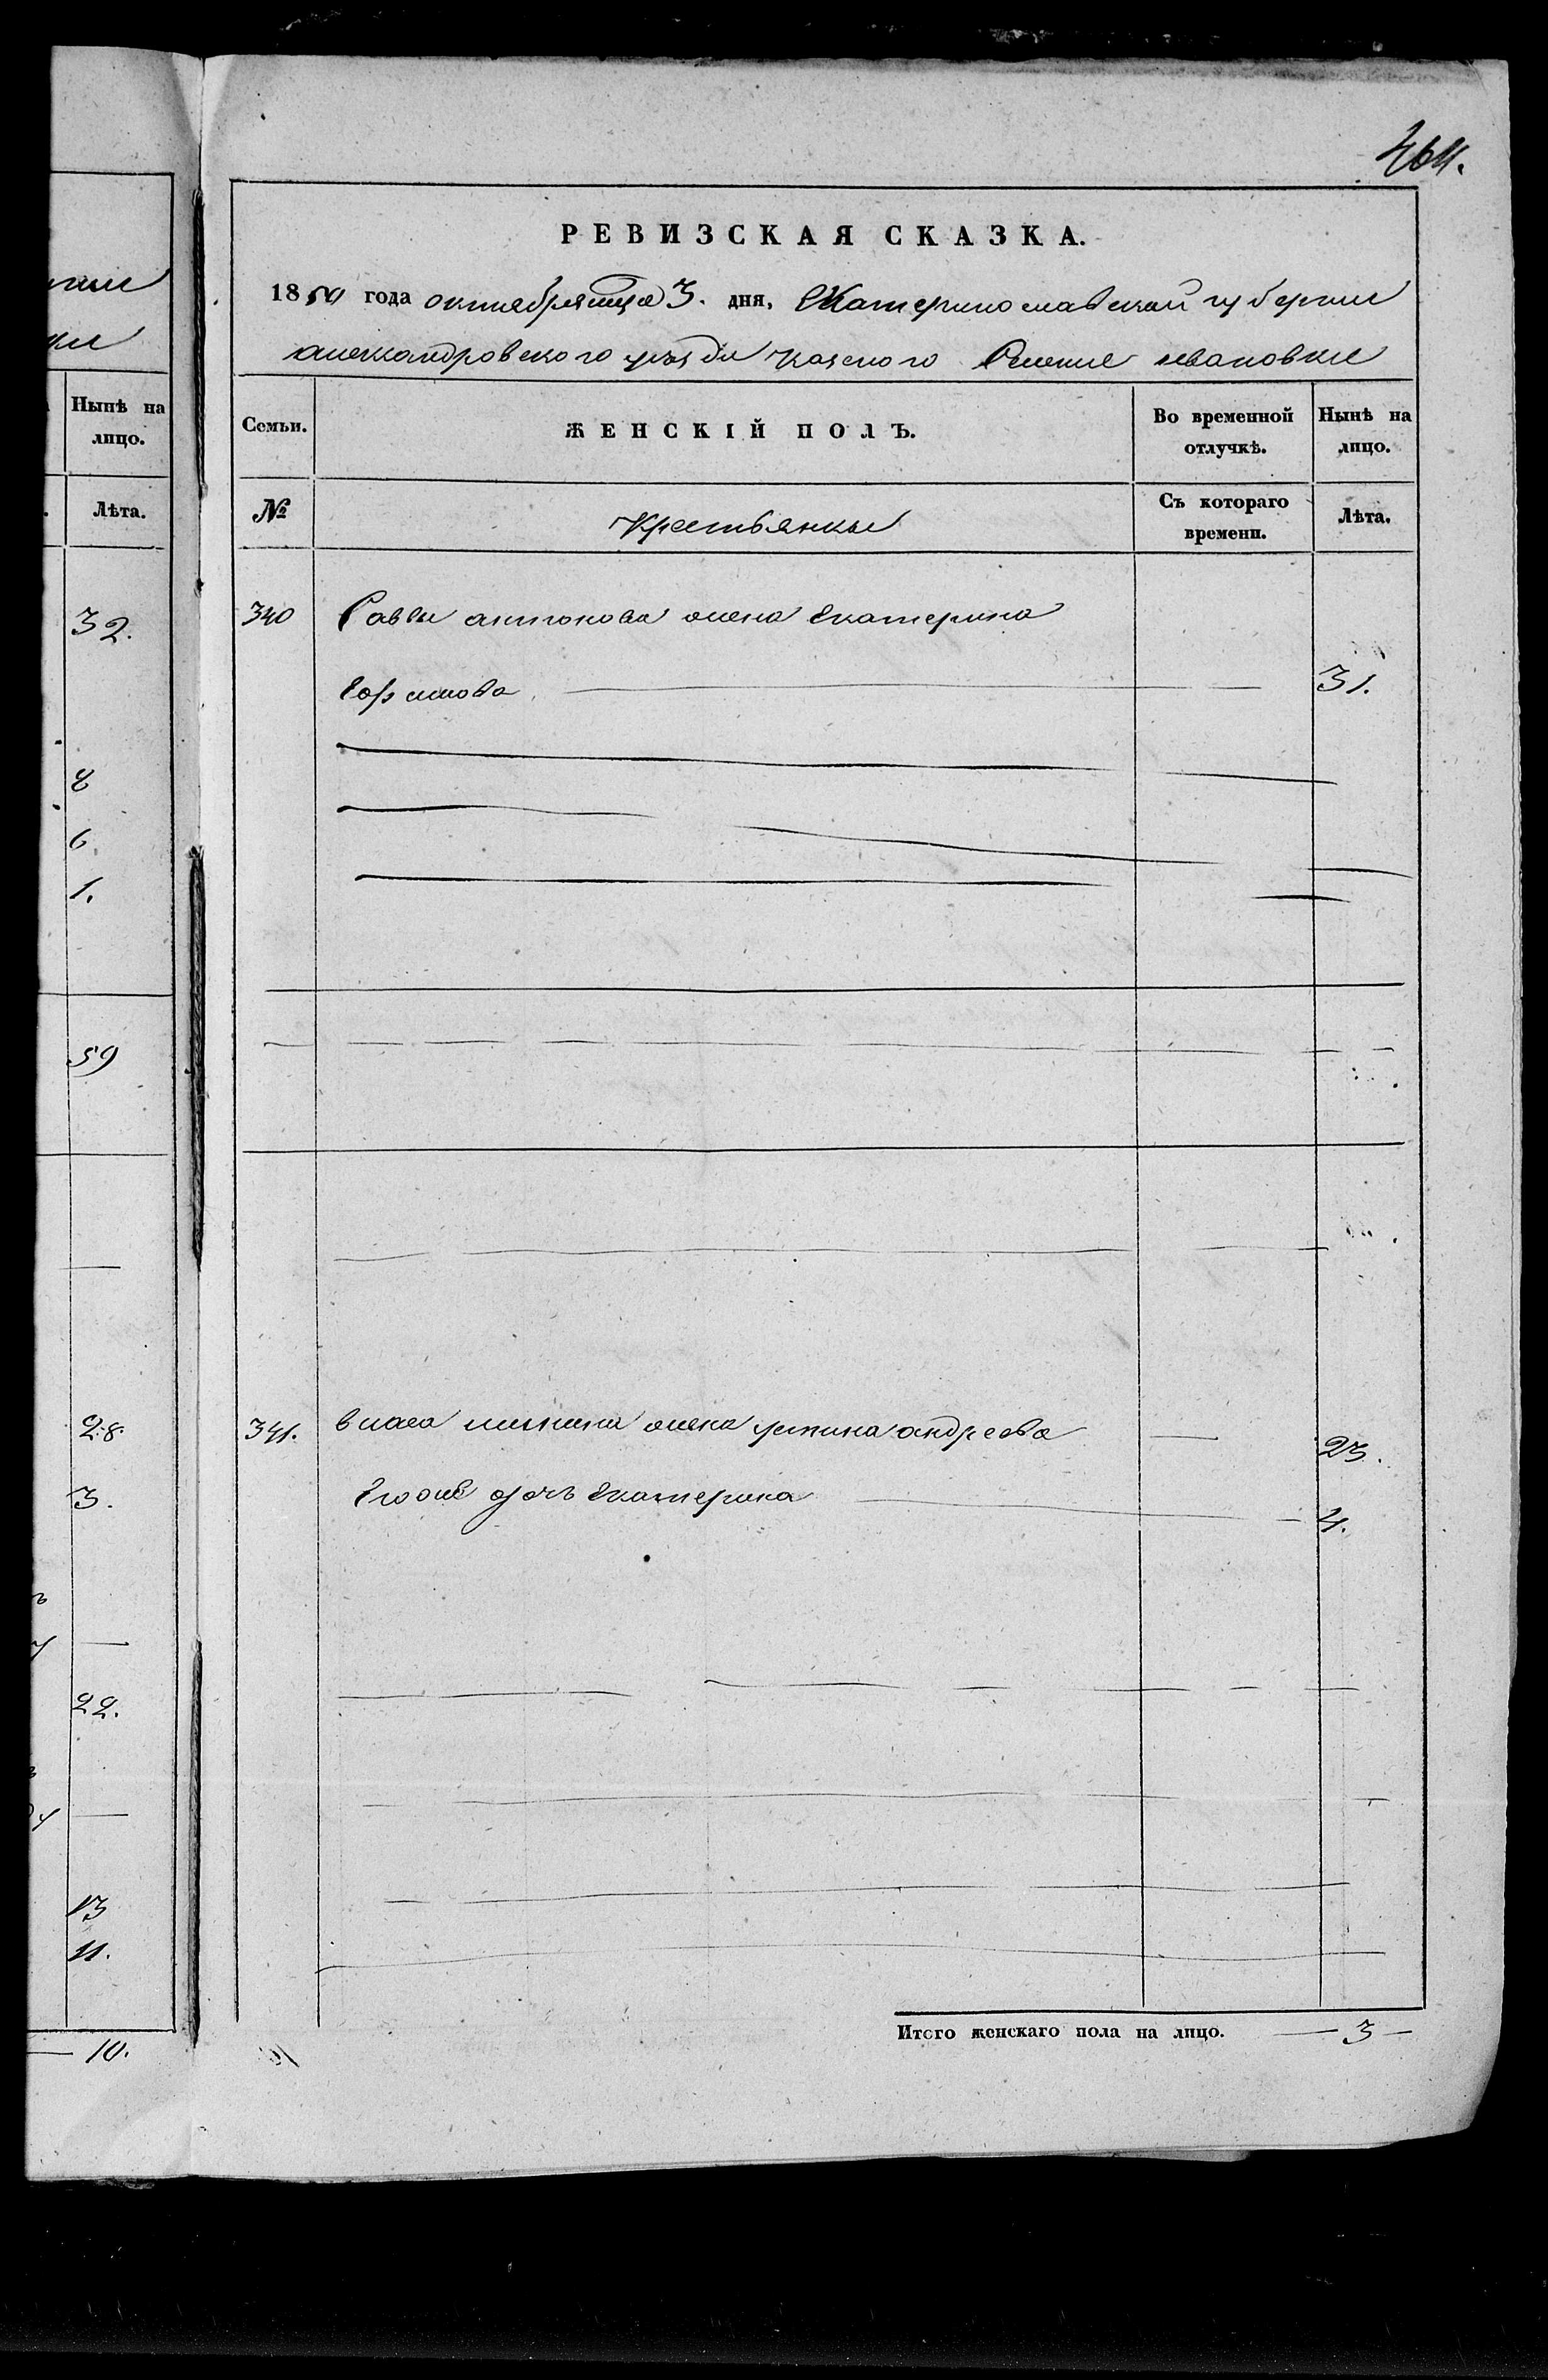 464.
РЕВИЗСКАЯ СКАЗКА.
1850 года октября мца 3. дня, Екатеринославской губернии
александровского уезда казеного Селение ивановки
Семьи.
ЖЕНСКІЙ ПОЛЪ.
Во временной отлучкѣ.
Нынѣ на лицо.
№
Крестьянки
Съ котораго времени.
Лѣта.
340 Саввы антонова жена Екатерина
31.
341. власа жена устина андреева 23.
Его дочь Екатерина 4.
Итого женскаго пола на лицо. — 3 —
Нынѣ на лицо.
Лѣта.
32.
8
6.
1.
59
28.
3.
22.
13
11.
— 10.